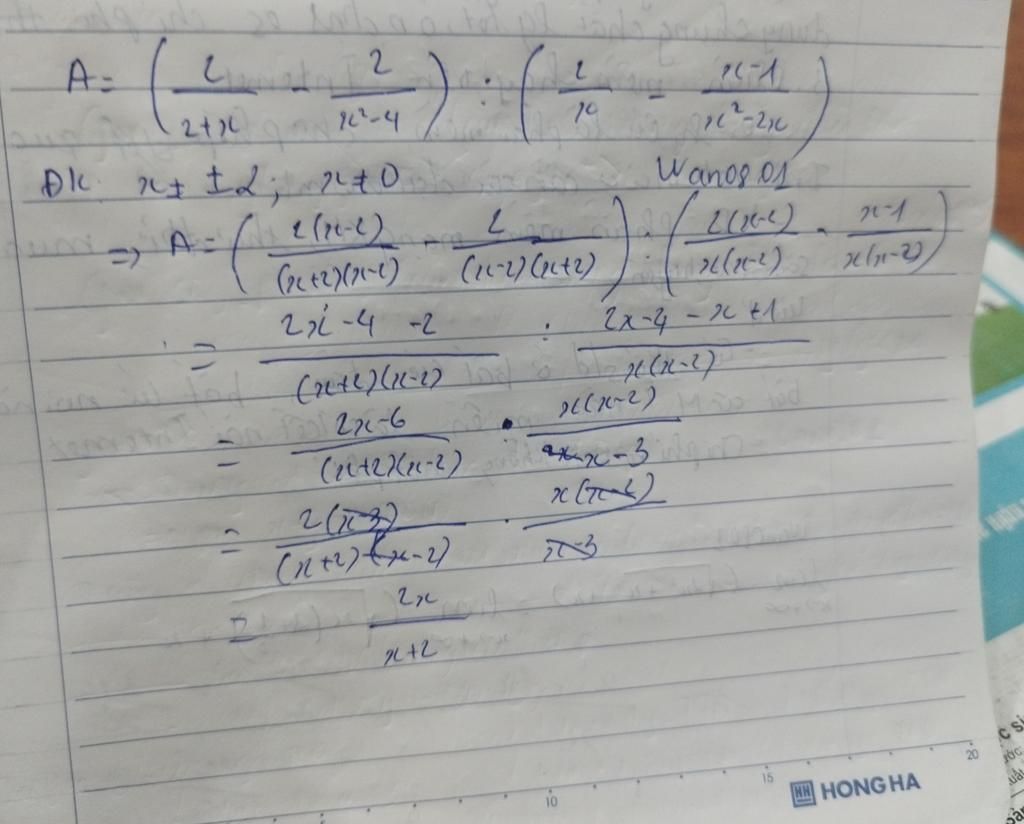 A = ( 2/(2+x) - 2/(x²-4) ) : ( 2/x - (x-1)/(x²-2x) )
ĐK: x ≠ ±2; x ≠ 0 Wanos01
=> A = ( 2(x-2)/((x+2)(x-2)) - 2/((x-2)(x+2)) ) : ( 2(x-2)/(x(x-2)) - (x-1)/(x(x-2)) )
= (2x-4-2)/((x+2)(x-2)) : (2x-4-x+1)/(x(x-2))
= (2x-6)/((x+2)(x-2)) . x(x-2)/(x-3)
= 2(x-3)/((x+2)(x-2)) . x(x-2)/(x-3)
= 2x/(x+2)
10 15 20
HH HONG HA